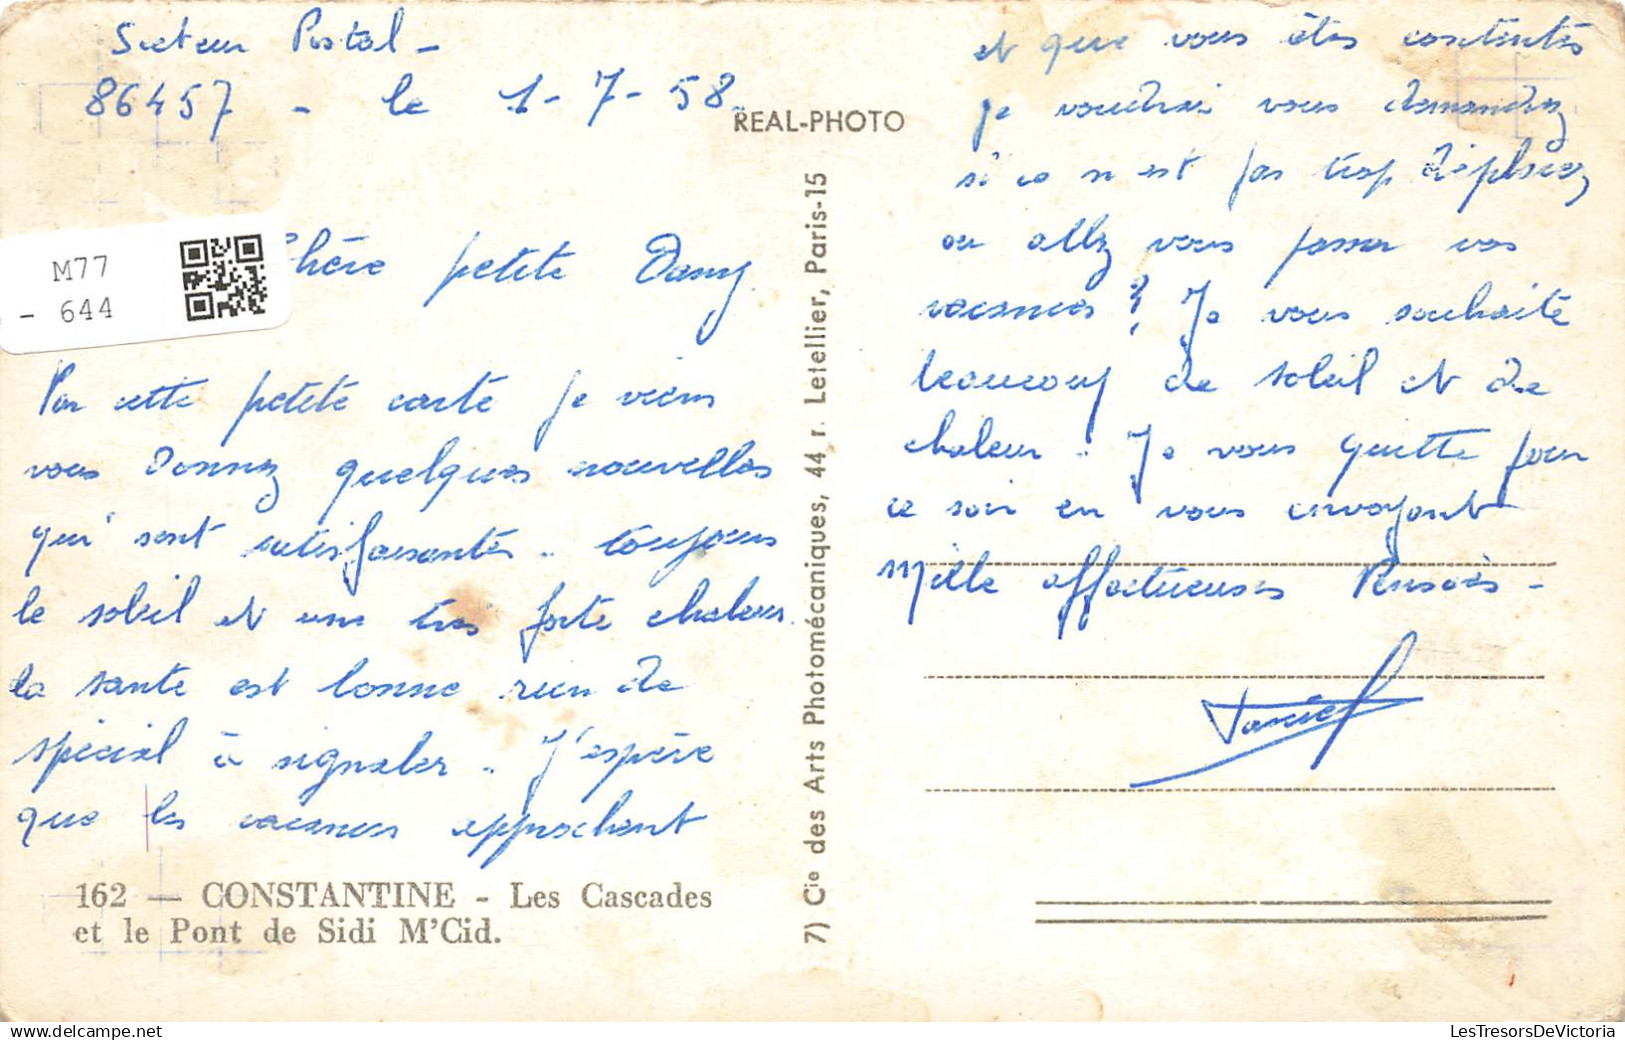 Secteur Postal -
86457 - le 1-7-58
REAL-PHOTO
M77
- 644
Chère petite Dany
Par cette petite carte je viens
vous Donnez quelques nouvelles
qui sont satisfaisantes. toujours
le soleil et une très forte chaleur.
la santé est bonne rien de
spécial à signaler. J'espère
que les vacances approchent
162 — CONSTANTINE - Les Cascades
et le Pont de Sidi M'Cid.
7) Cie des Arts Photomécaniques, 44 r. Letellier, Paris-15
et que vous êtes contentes
je voudrai vous demandez
si ce n'est pas trop déplacez
ou allez vous passer vos
vacances ? Je vous souhaite
beaucoup de soleil et de
chaleur. Je vous quitte pour
ce soir en vous envoyant
Mille affectueuses Pensées -
Daniel
LesTresorsDeVictoria.com